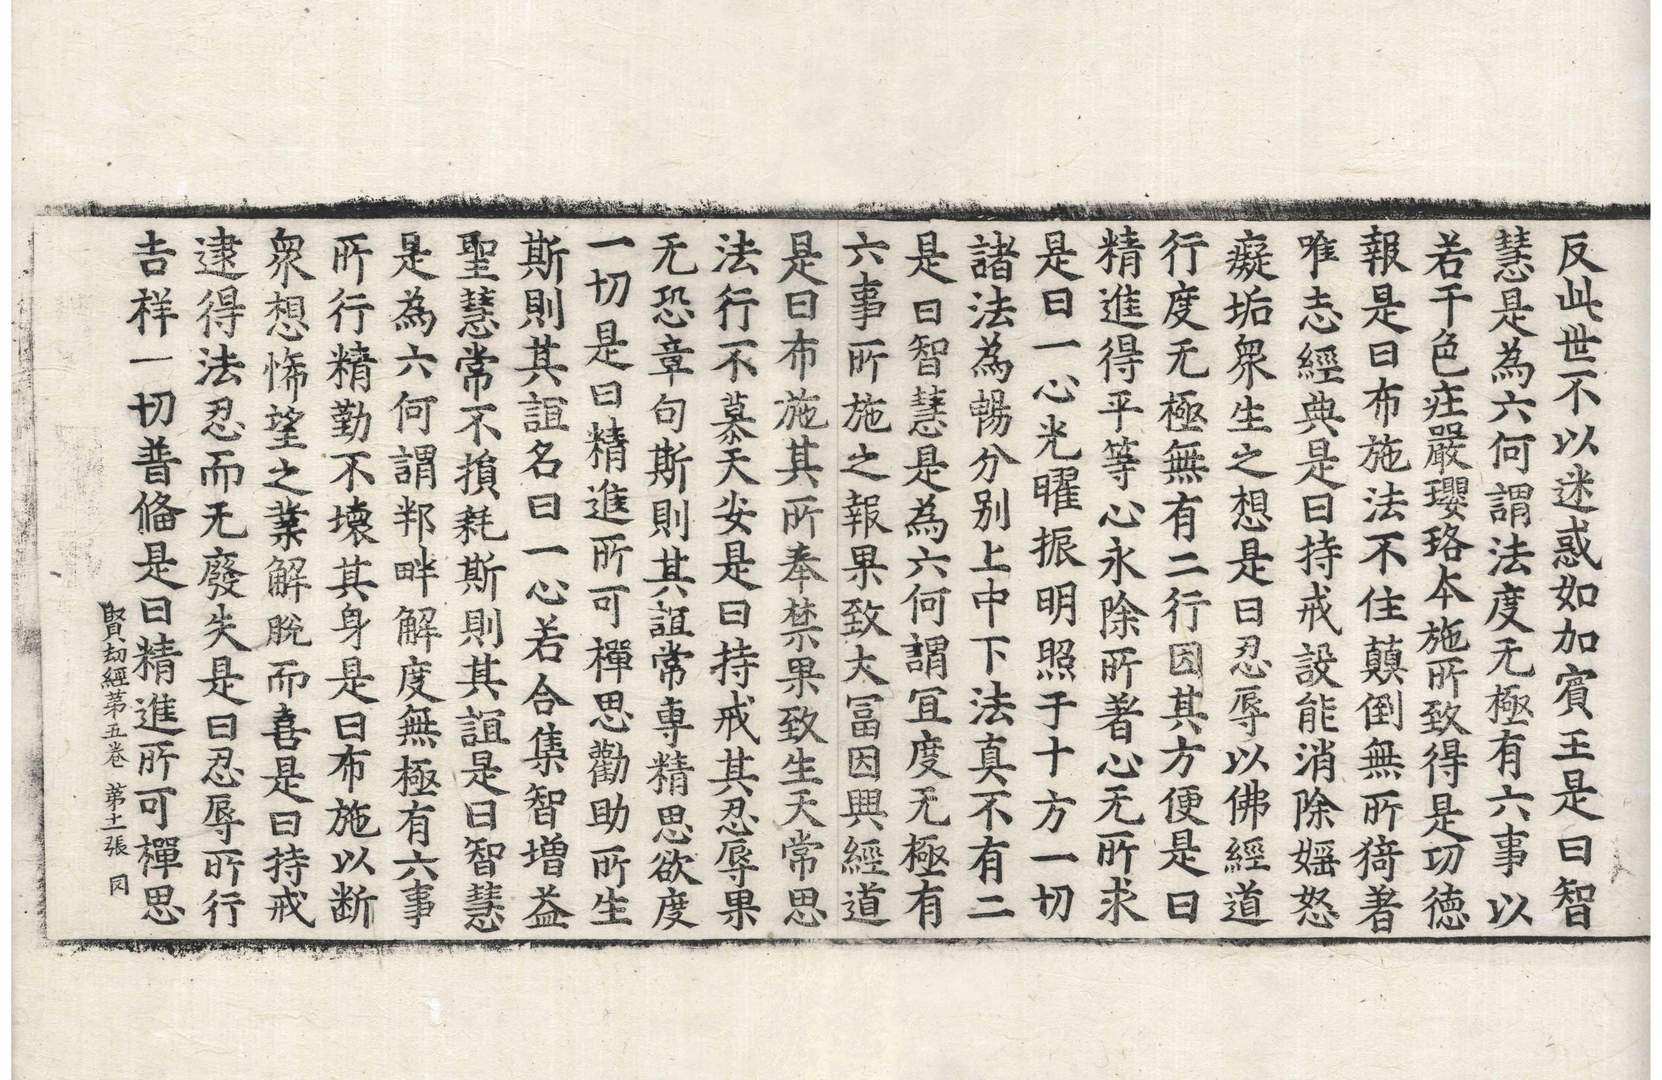 反此世不以迷惑如加賔王是曰智
慧是為六何謂法度无極有六事以
若干色庄嚴瓔珞本施所致得是功德
報是曰布施法不住顛倒無所猗著
唯志經典是曰持戒設能消除婬怒
癡垢衆生之想是曰忍辱以佛經道
行度无極無有二行因其方便是曰
精進得平等心永除所著心无所求
是曰一心光曜振明照于十方一切
諸法為暢分别上中下法真不有二
是曰智慧是為六何謂宜度无極有
六事所施之報果致大冨因興經道
是曰布施其所奉禁果致生天常思
法行不慕天安是曰持戒其忍辱果
无恐章句斯則其誼常専精思欲度
一切是曰精進所可禪思勸助所生
斯則其誼名曰一心若合集智増益
聖慧常不損耗斯則其誼是曰智慧
是為六何謂邦畔解度無極有六事
所行精勤不壞其身是曰布施以断
衆想悕望之業解脫而喜是曰持戒
逮得法忍而无廢失是曰忍辱所行
吉样一切普俻是曰精進所可禪思
賢劫經第五卷 第十一張 冈